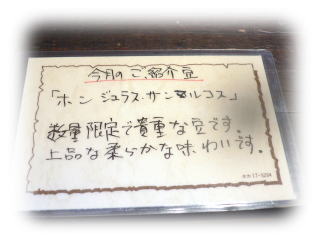 今月のご紹介豆
「ホンジュラス・サンマルコス」
数量限定で貴重な豆です。
上品な柔らかな味わいです。
ササガワ